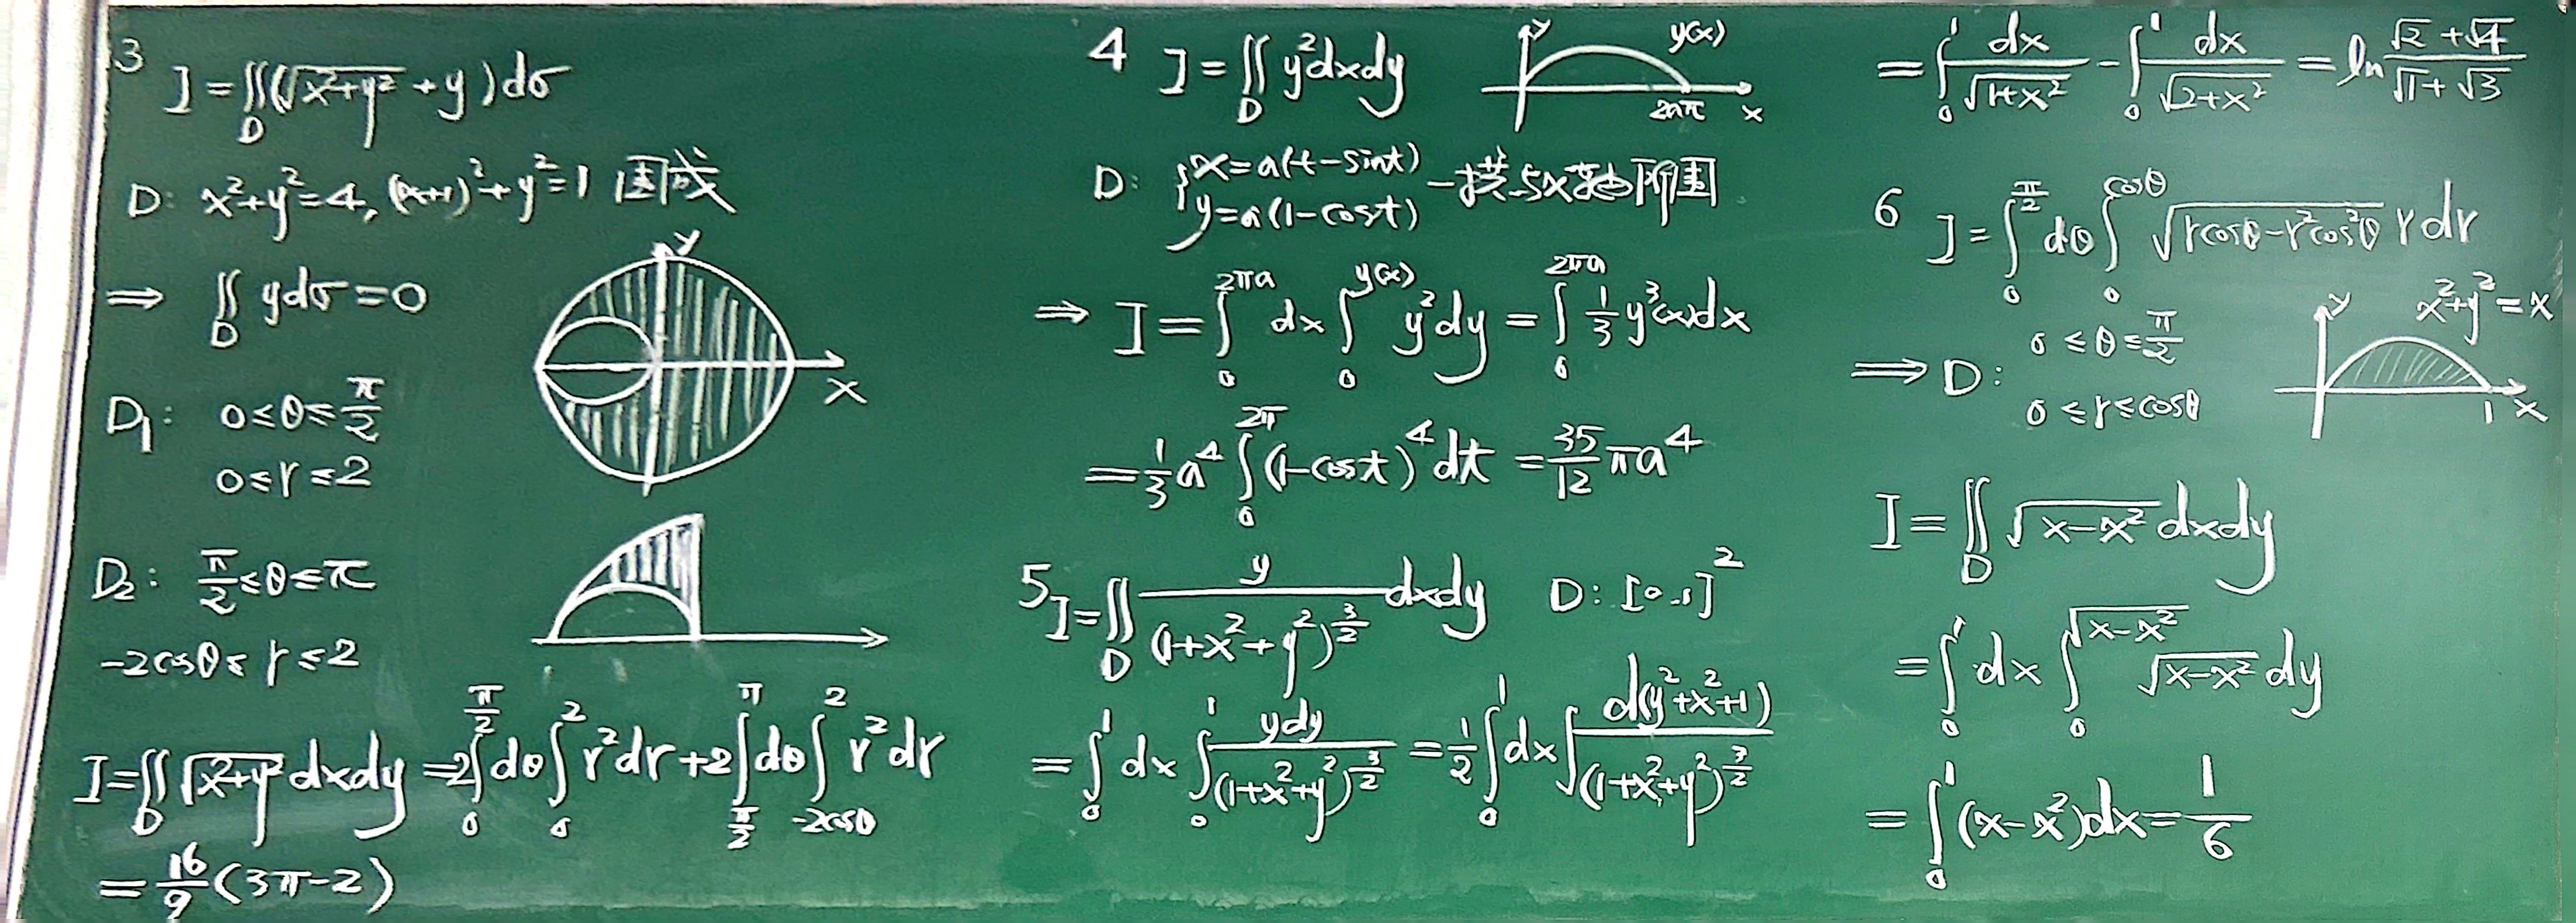 3
I=∬_D(√(x²+y²)+y)dσ
D: x²+y²=4, (x+1)²+y²=1 围成
⇒ ∬_D ydσ=0
y
x
D₁: 0≤θ≤π/2
0≤r≤2
D₂: π/2≤θ≤π
-2cosθ≤r≤2
I=∬_D √(x²+y²) dxdy=2∫_0^{π/2}dθ∫_0^2 r²dr+2∫_{π/2}^{π}dθ∫_{-2cosθ}^2 r²dr
=16/9(3π-2)
4 I=∬_D y²dxdy
y y(x)
2aπ x
D: {x=a(t-sint) y=a(1-cost) 一拱与x轴所围
⇒ I=∫_0^{2πa}dx∫_0^{y(x)}y²dy=∫_0^{2πa} 1/3 y³(x)dx
=1/3 a⁴∫_0^{2π}(1-cost)⁴dt=35/12 πa⁴
5 I=∬_D y/(1+x²+y²)^{3/2} dxdy D: [0,1]²
=∫_0^1 dx∫_0^1 ydy/(1+x²+y²)^{3/2}=1/2∫_0^1dx∫d(y²+x²+1)/(1+x²+y²)^{3/2}
=∫_0^1 dx/√(1+x²)-∫_0^1 dx/√(2+x²)=ln (√2+√4)/(√1+√3)
6 I=∫_0^{π/2}dθ∫_0^{cosθ}√(rcosθ-r²cos²θ) rdr
y x²+y²=x
1 x
⇒ D: 0≤θ≤π/2
0≤r≤cosθ
I=∬_D √(x-x²) dxdy
=∫_0^1 dx∫_0^{√(x-x²)}√(x-x²) dy
=∫_0^1(x-x²)dx=1/6